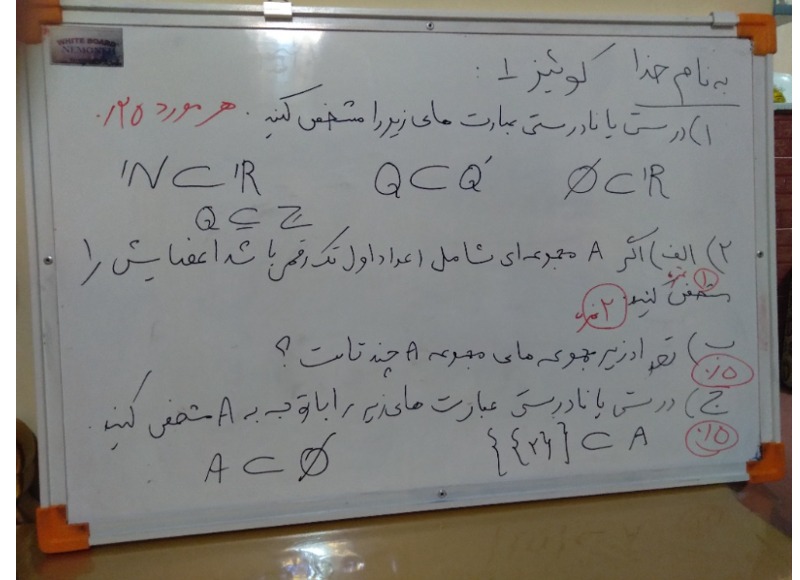 WHITE BOARD
NEMONEH
به نام خدا کوئیز ۱ :
۱) درستی یا نادرستی عبارت های زیر را مشخص کنید. هر مورد ۰/۲۵
∅ ⊂ ℝ Q ⊂ Q′ ℕ ⊂ ℝ
Q ⊆ ℤ
۲) الف) اگر A مجموعه ای شامل اعداد اول تک رقمی باشد اعضایش را
مشخص کنید. ۱ نمره
۲ نمره
ب) تعداد زیر مجموعه های مجموعه A چند تاست ؟
۰/۵
ج) درستی یا نادرستی عبارت های زیر را با توجه به A مشخص کنید.
{{۲}} ⊂ A ۰/۵
A ⊂ ∅